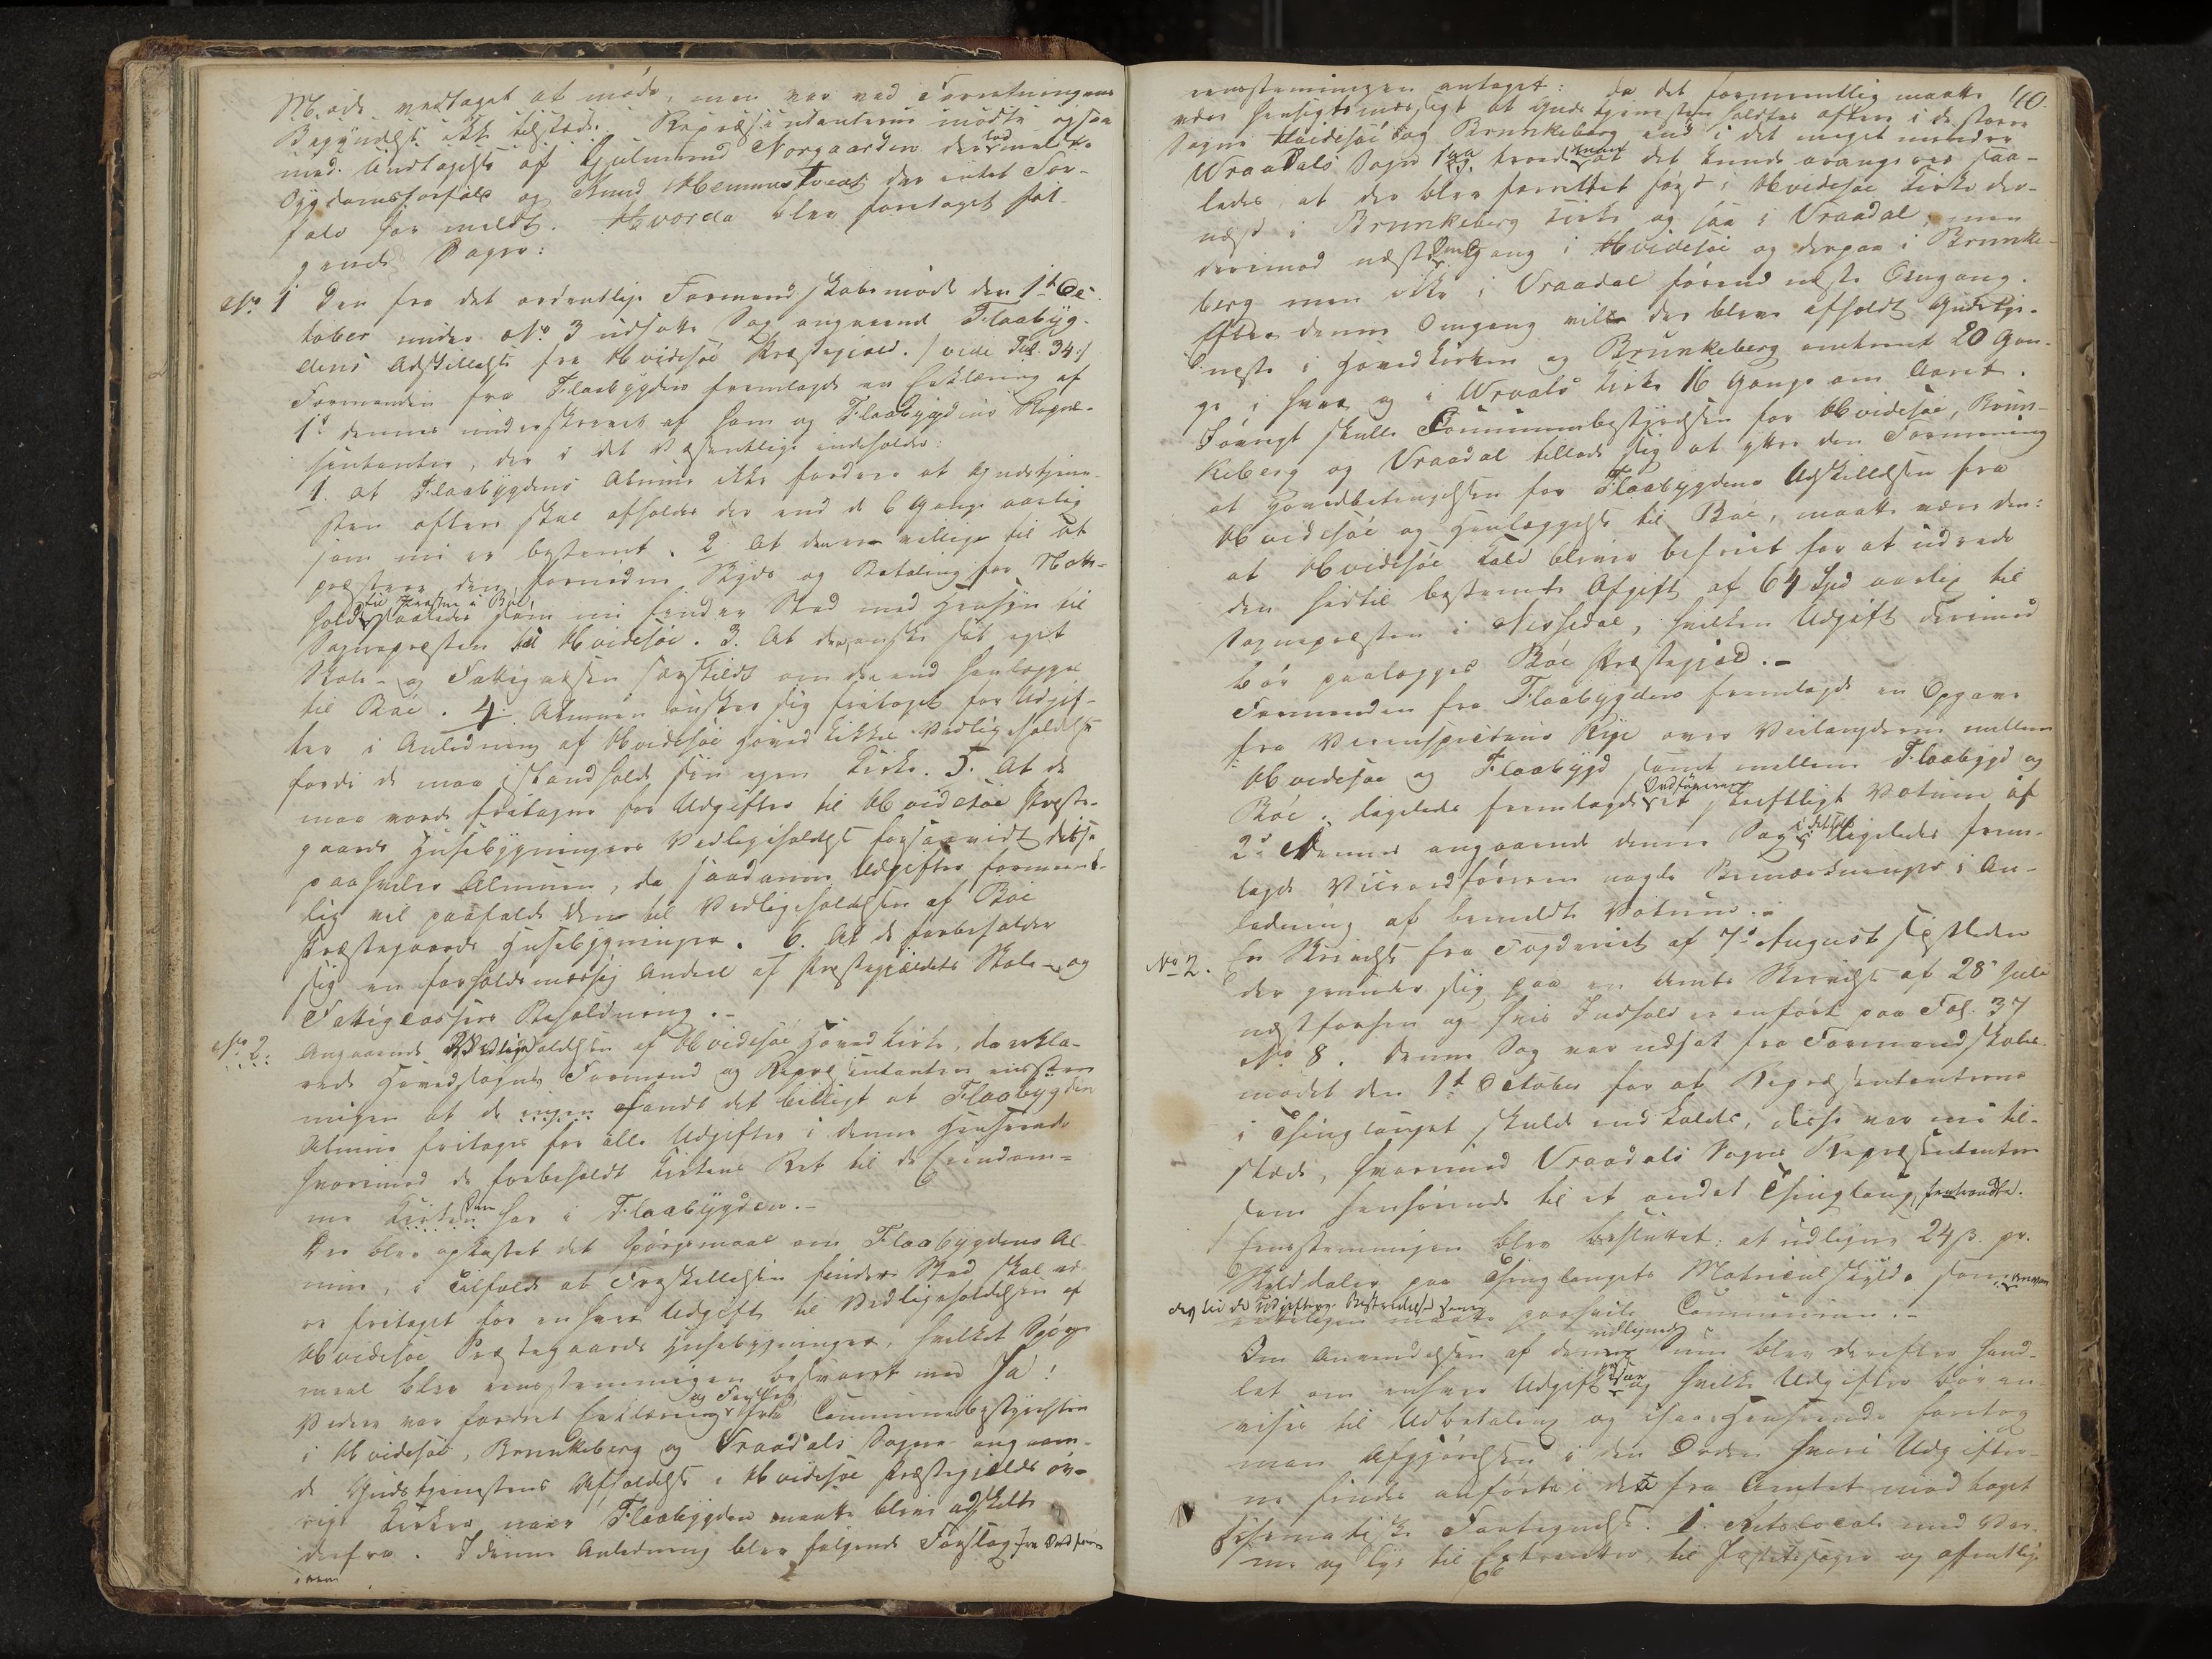 Møde vedtaget at møde, men var ved Forretningens
Begyndelse ikke tilstede. Repræsentanterne mødte ogsaa
med Undtagelse af Gjulmund Norgaarden der lod melde
Sygdomsforfald og Knud Hemmestveit der intet For-
fald har meldt. Hvorda blev foretaget føl-
gende Sager:
No. 1 Den fra det ordentlige Formandskabsmøde den 1ste Oc-
tober under No. 3 udsatte Sag angaaende Flaabyg-
dens Adskillelse fra Hvidesøe Præstegjeld. /: vide Fol. 34 :/
Formanden fra Flaabygden fremlagde en Erklæring af
1ste dennes underskrevet af ham og Flaabygdens Repræ-
sentanter, der i det Væsentlige indholder:
1. at Flaabygdens Almue ikke fordrer at Gudstjene-
sten oftere skal afholdes der end de 6 Gange aarlig
som nu er bestemt. 2. At den er villige til at
præstere den fornødne Skyds og Betaling for Natte-
hold til Præsten i Böe, saaledes som nu finder Sted med Hensyn til
Sognepræsten til Hvidesøe. 3. At den ønsker sit eget
Skole- og Fattigvæsen særskildt om den end henlægges
til Böe. 4. Almuen ønsker sig fritaget for Udgif-
ter i Anledning af Hvidesøe Hovedkirkes Vedligeholdelse
fordi de maa istandholde sin egen Kirke. 5. At de
maa vorde fritagne for Udgifter til Hvidesøe Præste-
gaards Huusebygningers Vedligeholdelse forsaavidt disse
paahviler Almuen, da saadanne Udgifter formeent-
lig vil paafalde den til Vedligeholdelse af Böe
Præstegaards Huusebygninger. 6. At de forbeholder
sig en forholdsmæssig Andeel af Præstegjeldets Skole- og
Fattigcassers Beholdning.-
No. 2. Angaaende Vedligeholdelsen af Hvidesøe Hovedkirke, da erklæ-
rede Hovedsognets Formænd og Repræsentanter eenstem-
migen at de ingen fandt det billigt at Flaabygdens
Almue fritages for alle Udgifter i denne Henseende
hvorimod de forbeholdt Kirkens Ret til de Eiendom-
me Kirken har i Flaabygden.-
Der blev opkastet det Spørgsmaal om Flaabygdens Al-
mue, i Tilfælde at Fraskillelsen finder Sted skal væ-
re fritaget for enhver Udgift til Vedligeholdelsen af
Hvidesøe Præstegaards Huusebygninger, hvilket Spørgs-
maal blev eenstemmigen besvaret med Ja!
Videre var fordret Erklæring og Forslag fra Communebestyrelsen
i Hvidesøe, Brunkeberg og Vraadals Sogne angaaen-
de Gudstjenestens Afholdelse i Hvidesøe Præstegjelds øv-
rige Kirker naar Flaabygden maatte blive adskilt
derfra. I denne Anledning blev følgende Forslag fra Ordføre-
ren
40.
eenstemmigen antaget: da det formeentlig maatte
være hensigtsmæssigt at Gudstjenesten holdtes oftere i de større
Sogne Hvidesøe og Brunkeberg end i det meget mindre
Wraadals Sogn saa troede man at det kunde arrangeres saa-
ledes, at der blev forrettet først i Hvidesøe Kirke der-
næst i Brunkeberg Kirke og saa i Vraadal, men
derimod næste Omgang i Hvidesøe og derpaa i Brunke-
berg men ikke i Vraadal førend næste Omgang.
Efter denne Omgang vilde der blive afholdt Gudstje-
neste i Hovedkirken og Brunkeberg omtrent 20 Gan-
ge i hver og i Wraals Kirke 16 Gange om Aaret.
Forøvrigt skulle Communebestyrelsen for Hvidesøe, Brun-
keberg og Vraadal tillade sig at ytre den Formening
at Hovedbetingelsen for Flaabygdens Udskillelse fra
Hvidesøe og Henlæggelse til Böe, maatte være den:
at Hvidesøe Kald bliver befriet for at udrede
den hidtil bestemte Afgift af 64 Spd aarlig til
Sognepræsten i Nissedal, hvilken Udgift derimod
bør paalægges Böe Præstegjeld.-
Formanden fra Flaabygden fremlagde en Opgave
fra Veiinspecteur Rye over Veilængderne mellem
Hvidesøe og Flaabygd samt mellem Flaabygd og
Böe. Ligeledes fremlagde Ordføreren et skriftligt Votum af
2den dennes angaaende denne Sag, ligeledes frem-
lagde Viceordføreren nogle Bemærkninger i An-
ledning af bemeldte Votum.-
No 2. En Skrivelse fra Fogderiet af 7de August sidstleden
der grunder sig paa en Amts Skrivelse af 28de Juli
næstforhen og hvis Indhold er anført paa Fol. 37
No. 8. Denne Sag var udsat fra Formandskabs-
mødet den 1ste October for at Repræsentanterne
i Thinglauget skulde indkaldes, disse var nu til-
stede, hvorimod Vraadals Sogns Repræsentanter
som henhørende til et andet Thinglaug, fratraadte.
Eenstemmigen blev besluttet: at udligne 24 ß. pr.
Skylddaler paa Thinglaugets Matriculskyld
deg til de Udgifters Bestridelse som
maatte paahvile Communen.-
Om Anvendelsen af denne udlignede Sum blev derefter hand-
let om enhver Udgift især og hvilke Udgifter bør an-
vises til Udbetaling og i saa Henseende foretog
man Afgjørelsen i den Orden hvori Udgifter-
ne findes anførte i det fra Amtet modtaget
schematiske Fortegnelse. 1. Retslocale med Var-
me og Lys til Extraretter, til Justitssager og ofentlig